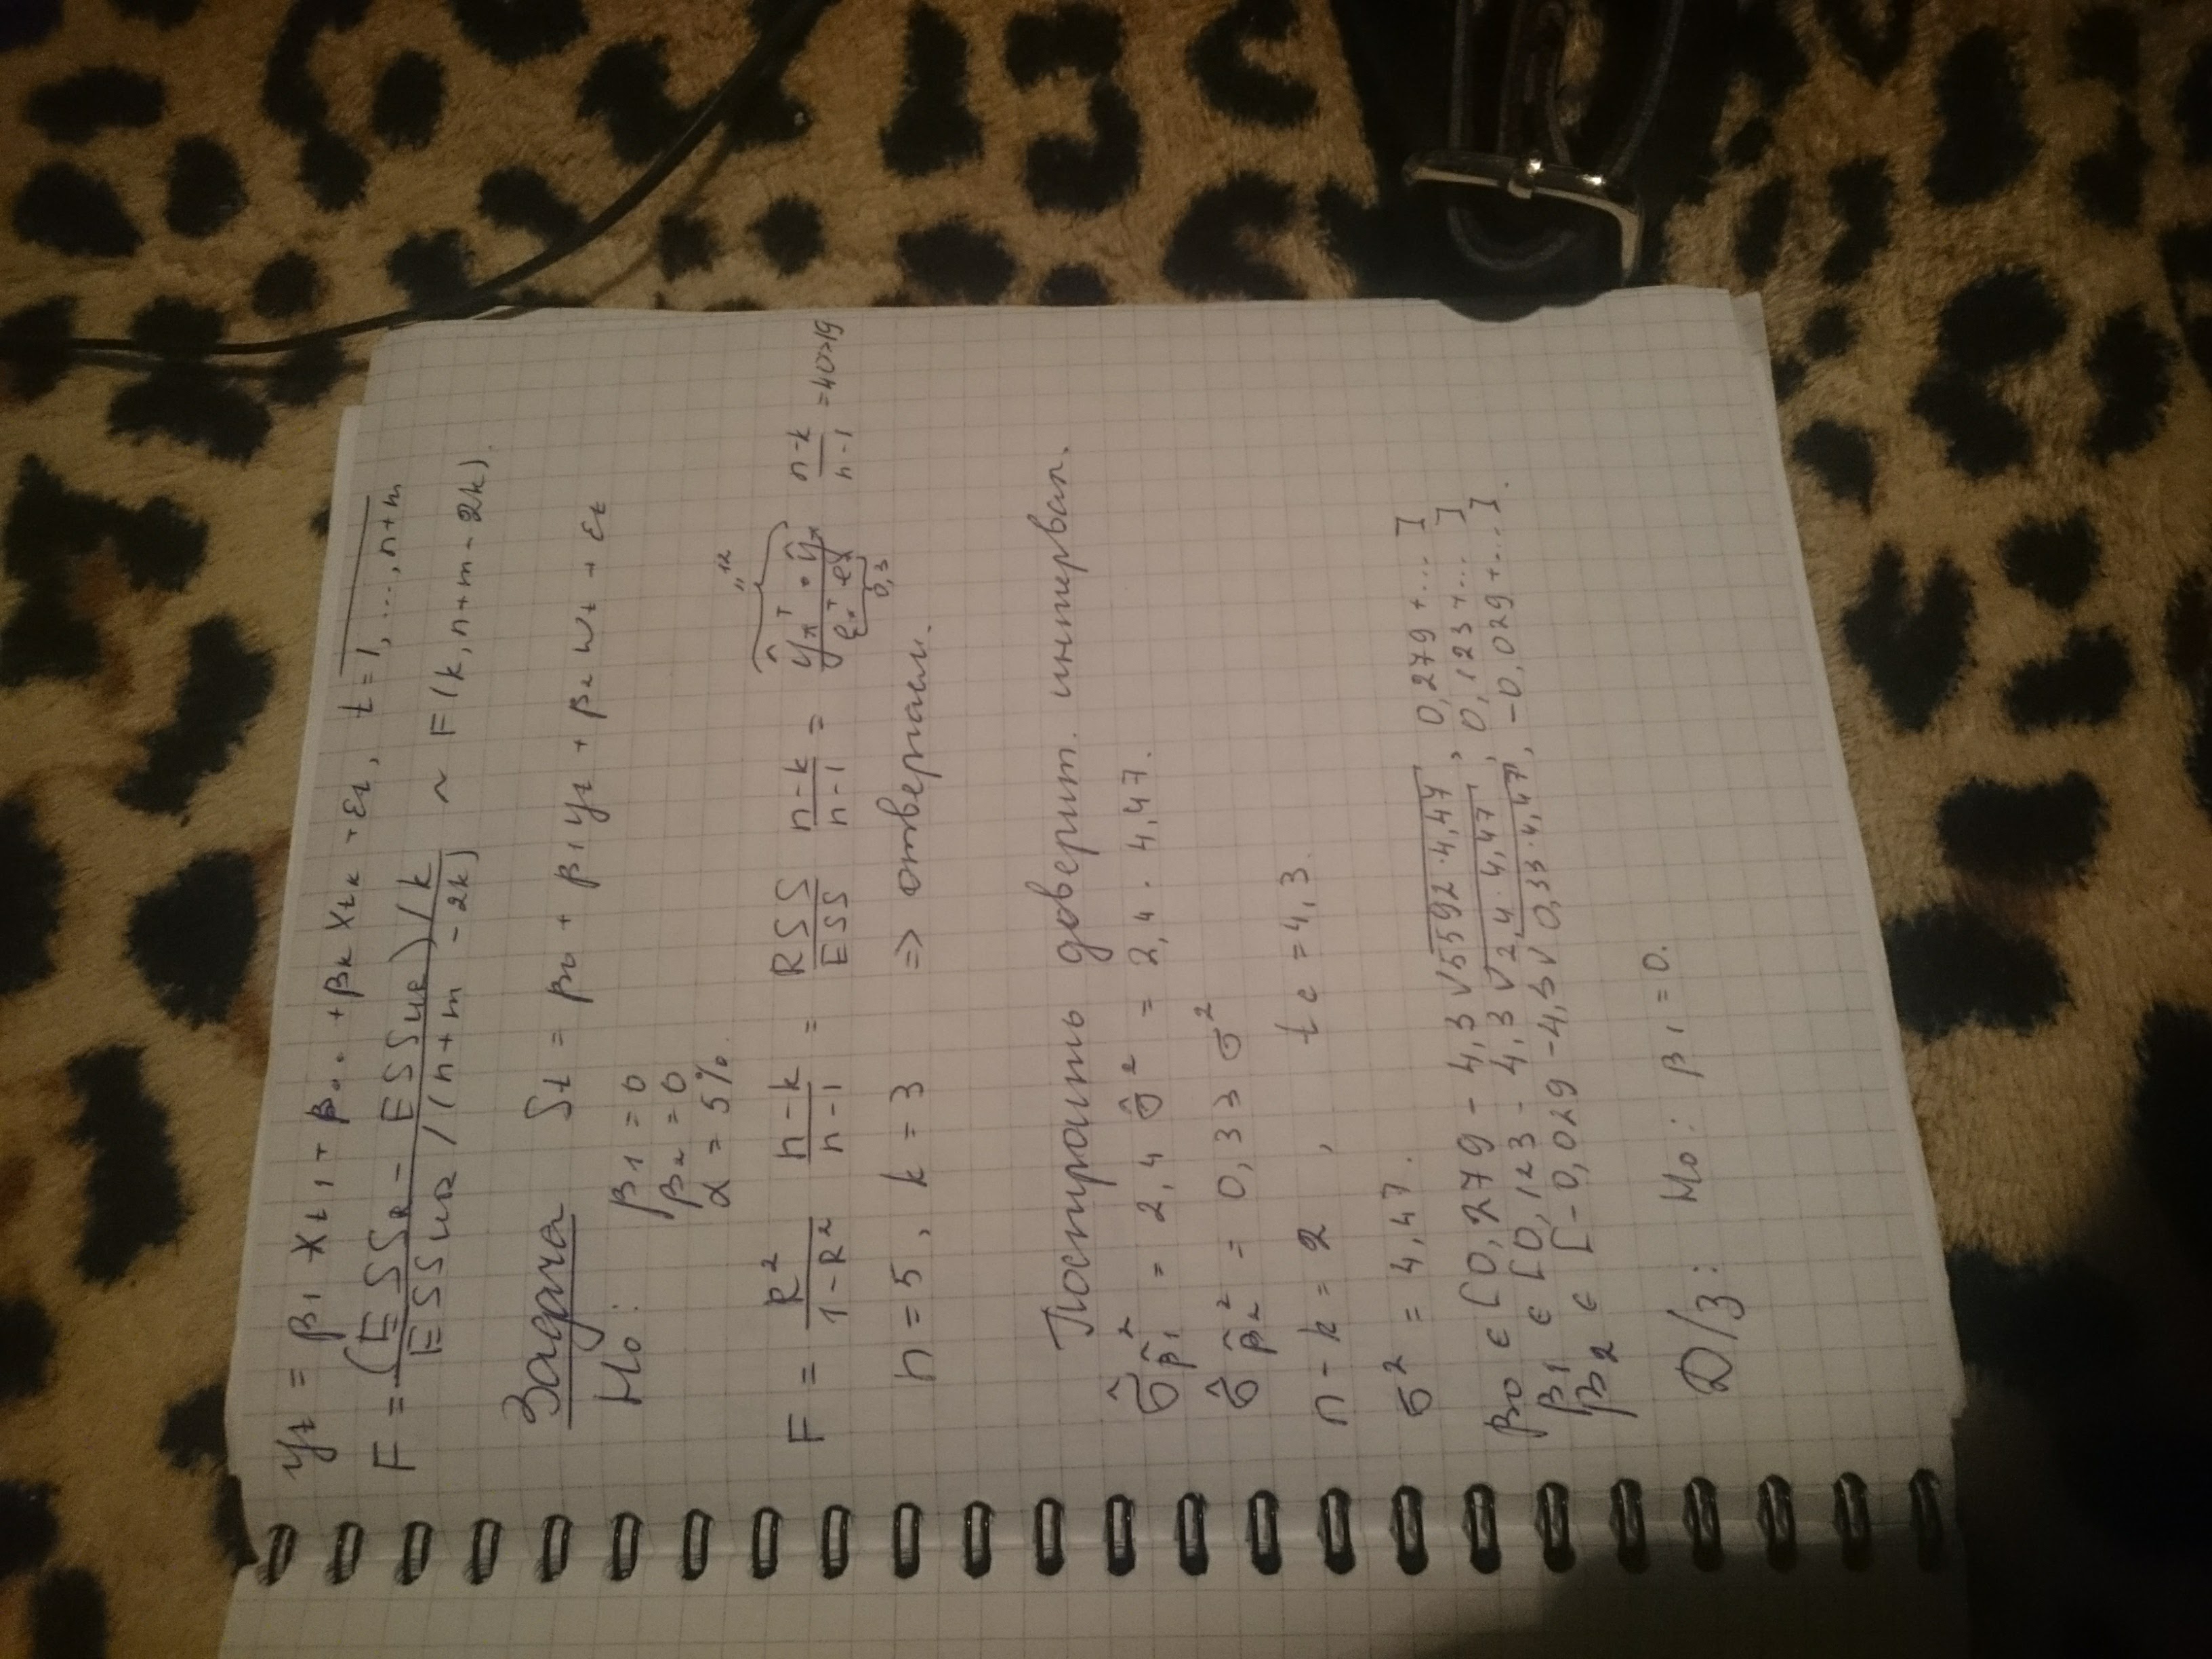 yt = β1 Xt1 + β... + βk Xtk + εt, t = 1, ..., n+m
F = (ESSR - ESSUR)/k / ESSUR/(n+m-2k) ~ F(k, n+m-2k).
Задача St = β0 + β1 yt + β2 wt + εt
H0: β1 = 0
β2 = 0
α = 5%.
F = R²/(1-R²) (n-k)/(n-1) = RSS/ESS (n-k)/(n-1) = ŷ*ᵀ · ŷ*/e*ᵀ · e* (n-k)/(n-1) = 40 > 19
12
0,3
n = 5, k = 3 => отвергаем.
Построить доверит. интервал.
σ̂²β̂1 = 2,4 σ̂² = 2,4 · 4,47.
σ̂²β̂2 = 0,33 σ²
n - k = 2, tc = 4,3
σ² = 4,47.
β0 ∈ [0,279 - 4,3 √5592·4,47, 0,279+...]
β1 ∈ [0,123 - 4,3 √2,4·4,47, 0,123+...]
β2 ∈ [-0,029 - 4,3 √0,33·4,47, -0,029+...].
D/з: H0: β1 = 0.